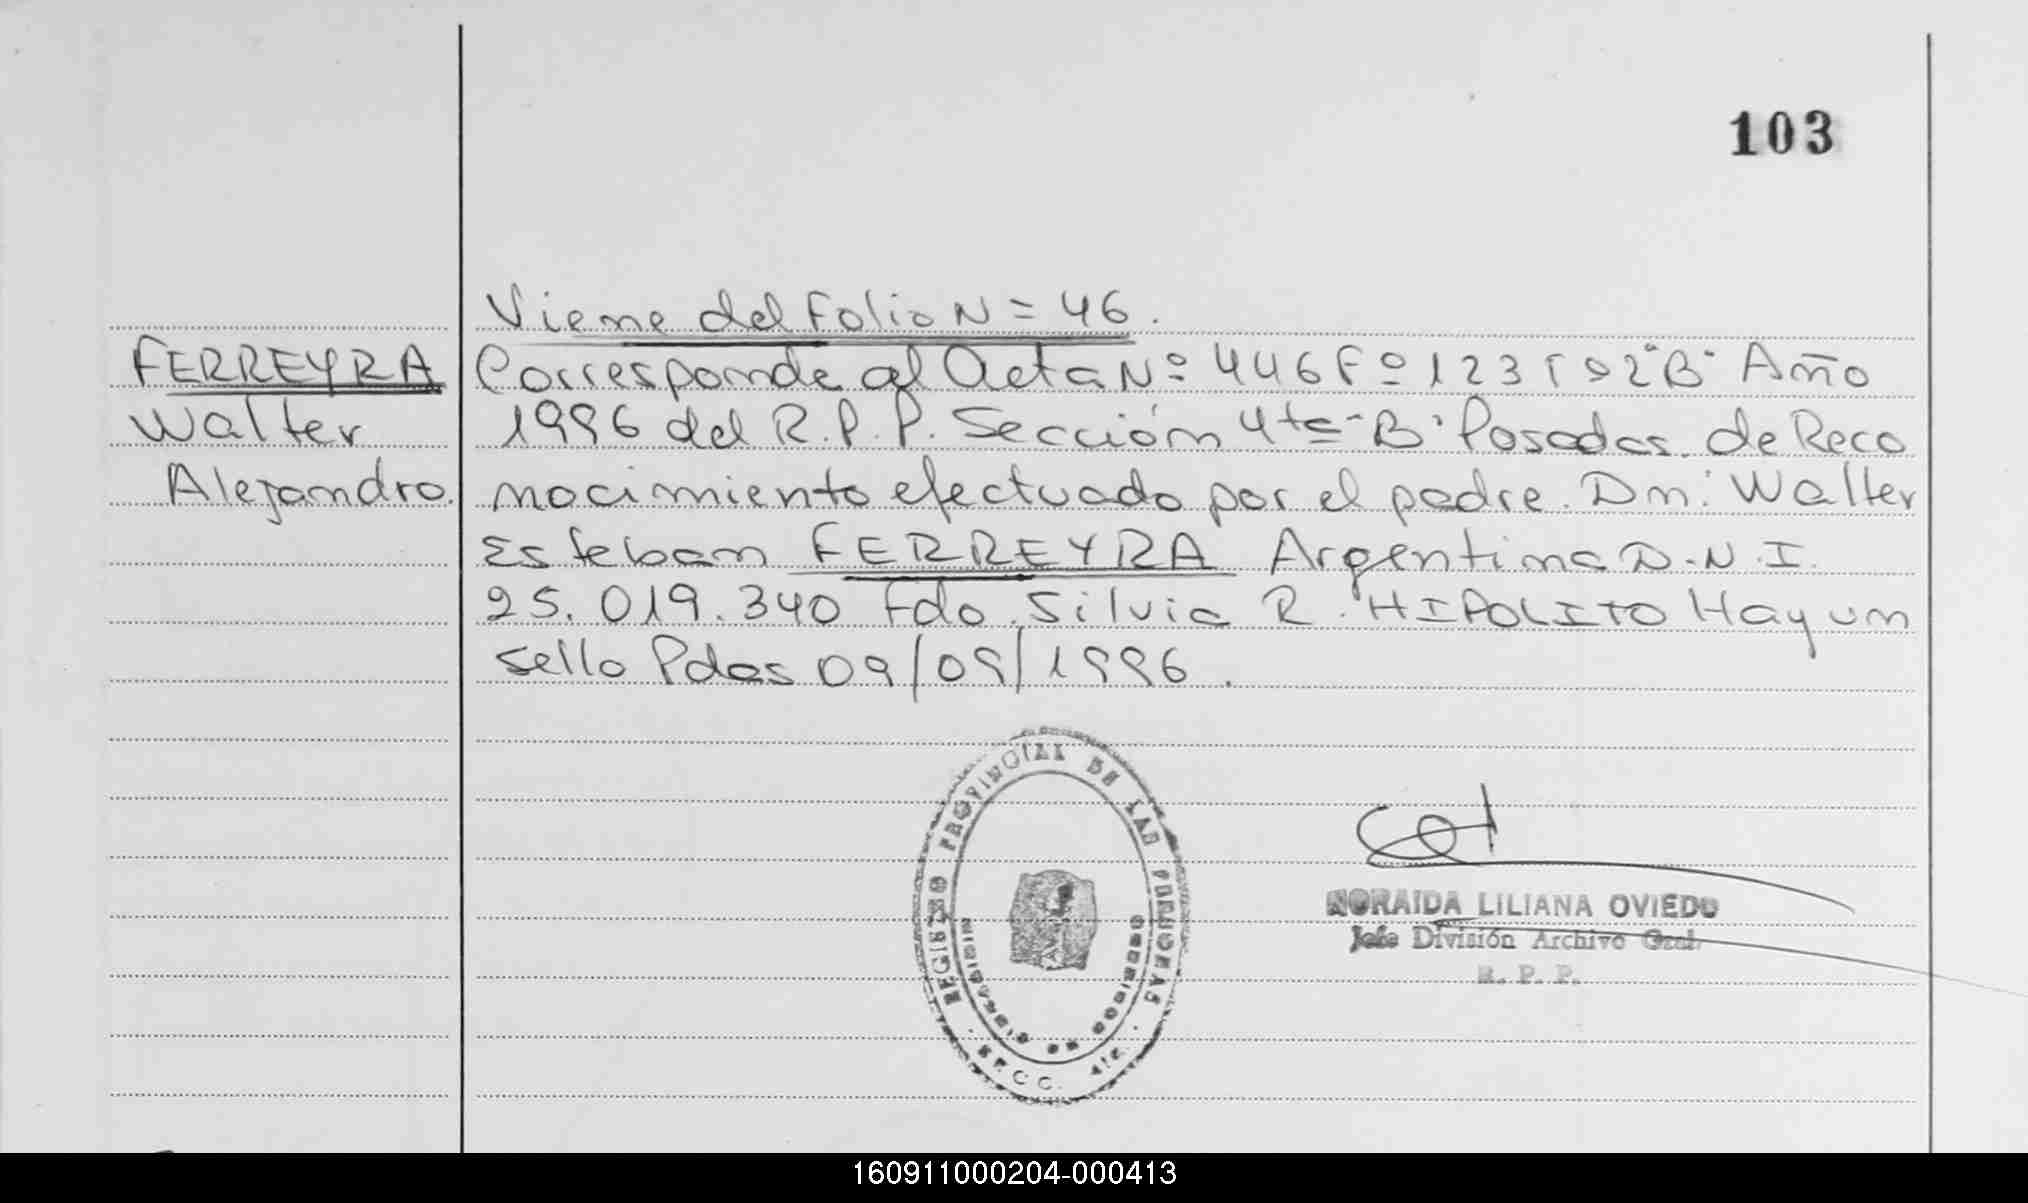 103
Viene del Folio N= 46.
FERREYRA
Walter
Alejandro.
Corresponde al Acta Nº 446 Fº 123 Tº 2º"B" Año
1996 del R.P.P. Sección 4ta "B" Posadas. de Reco
nocimiento efectuado por el padre. Dn: Walter
Esteban FERREYRA Argentino D.N.I.
25.019.340 Fdo. Silvia R. HIPOLITO Hay un
sello Pdas 09/09/1996.
REGISTRO PROVINCIAL DE LAS PERSONAS
MISIONES
SECC. 4ta.
NORAIDA LILIANA OVIEDO
Jefe División Archivo Gral.
R. P. P.
160911000204-000413